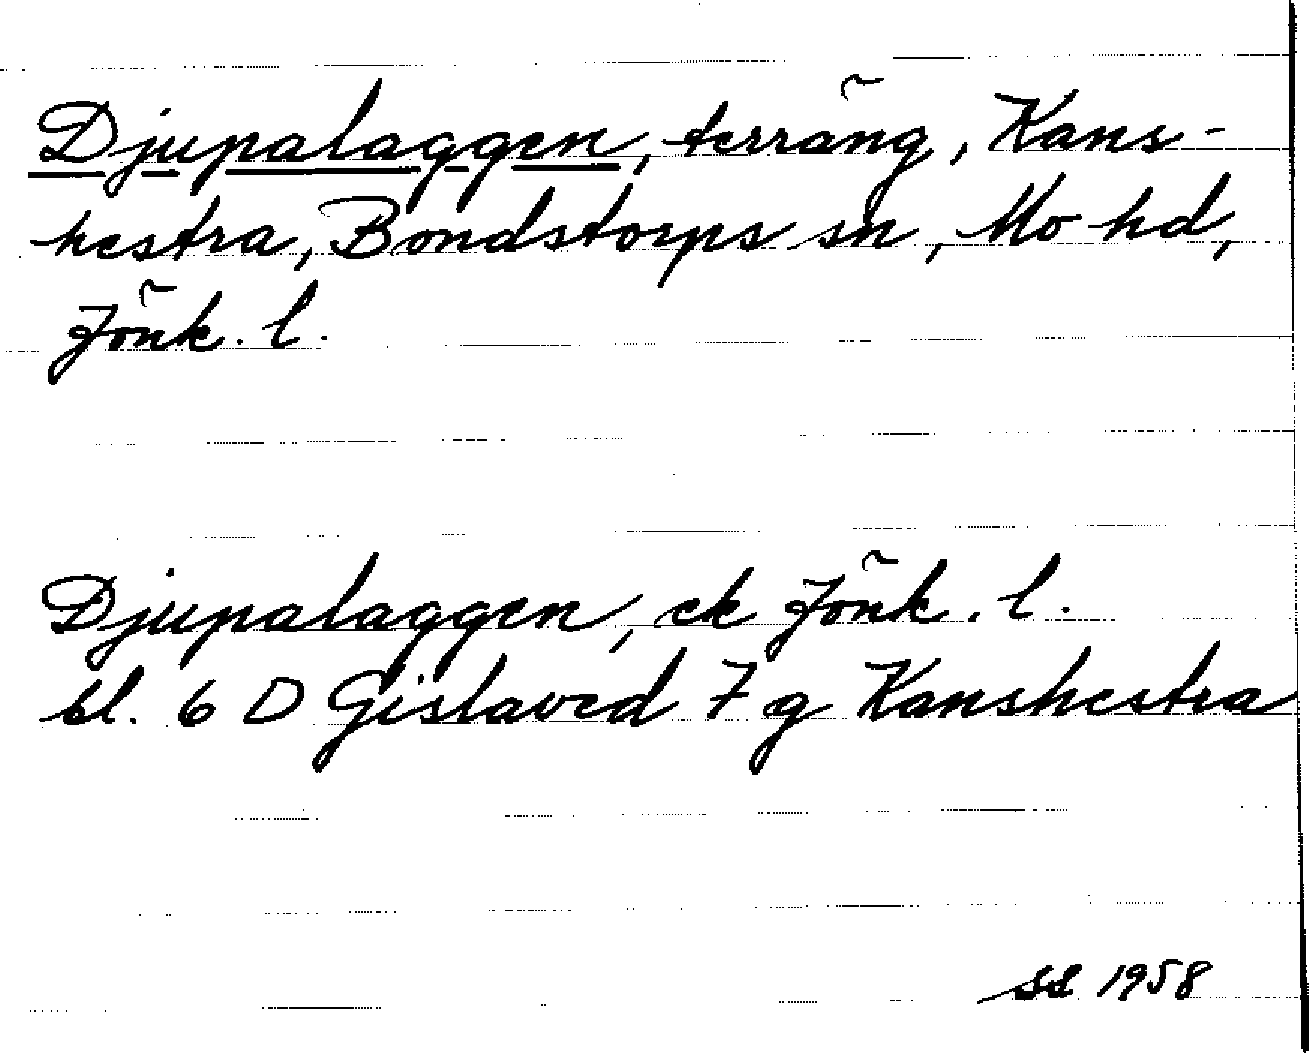 Djupalaggen, terräng, Kans-
hestra, Bondstorps sn, Mo hd,
Jönk. l.
Djupalaggen, ek Jönk. l.
bl. 6 D Gislaved 7 g Kanshestra
SL 1958